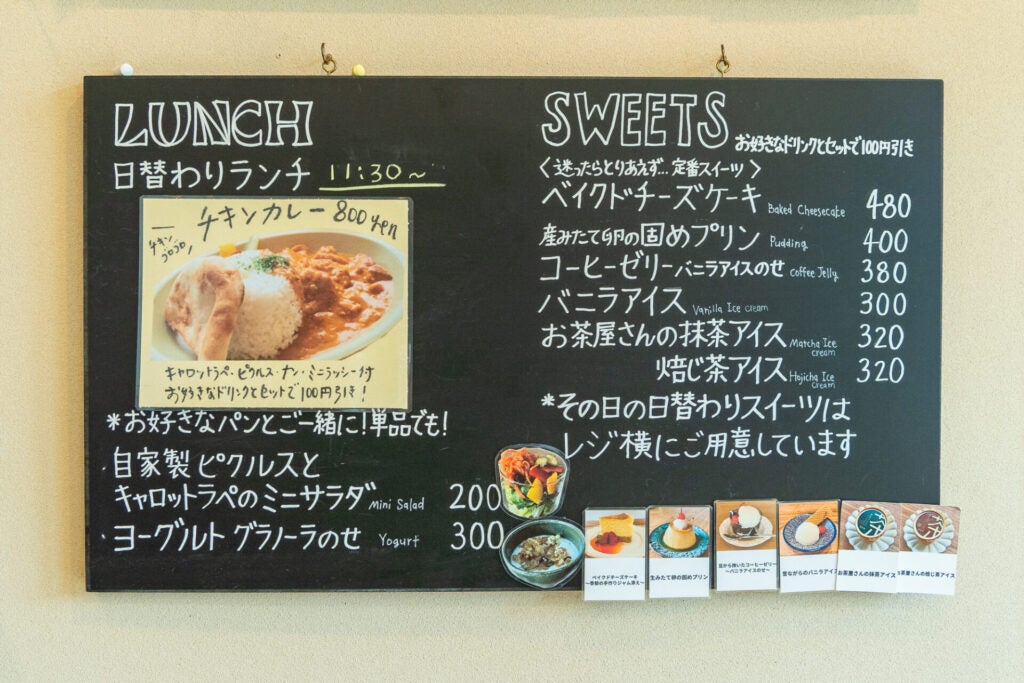 LUNCH
日替わりランチ 11:30～
チキンカレー 800yen
チキン
ゴロゴロ!
キャロットラペ・ピクルス・ナン・ミニラッシー付
お好きなドリンクとセットで100円引き!
*お好きなパンとご一緒に!単品でも!
自家製ピクルスと
キャロットラペのミニサラダ Mini Salad 200
ヨーグルト グラノーラのせ Yogurt 300
SWEETS お好きなドリンクとセットで100円引き
〈迷ったらとりあえず…定番スイーツ〉
ベイクドチーズケーキ Baked Cheesecake 480
産みたて卵の固めプリン Pudding 400
コーヒーゼリー バニラアイスのせ Coffee Jelly 380
バニラアイス Vanilla Ice cream 300
お茶屋さんの抹茶アイス Matcha Ice cream 320
焙じ茶アイス Hojicha Ice cream 320
*その日の日替わりスイーツは
レジ横にご用意しています
ベイクドチーズケーキ
～季節の手作りジャム添え～
生みたて卵の固めプリン
豆から挽いたコーヒーゼリー
～バニラアイスのせ～
昔ながらのバニラアイス
お茶屋さんの抹茶アイス
茶屋さんの焙じ茶アイス